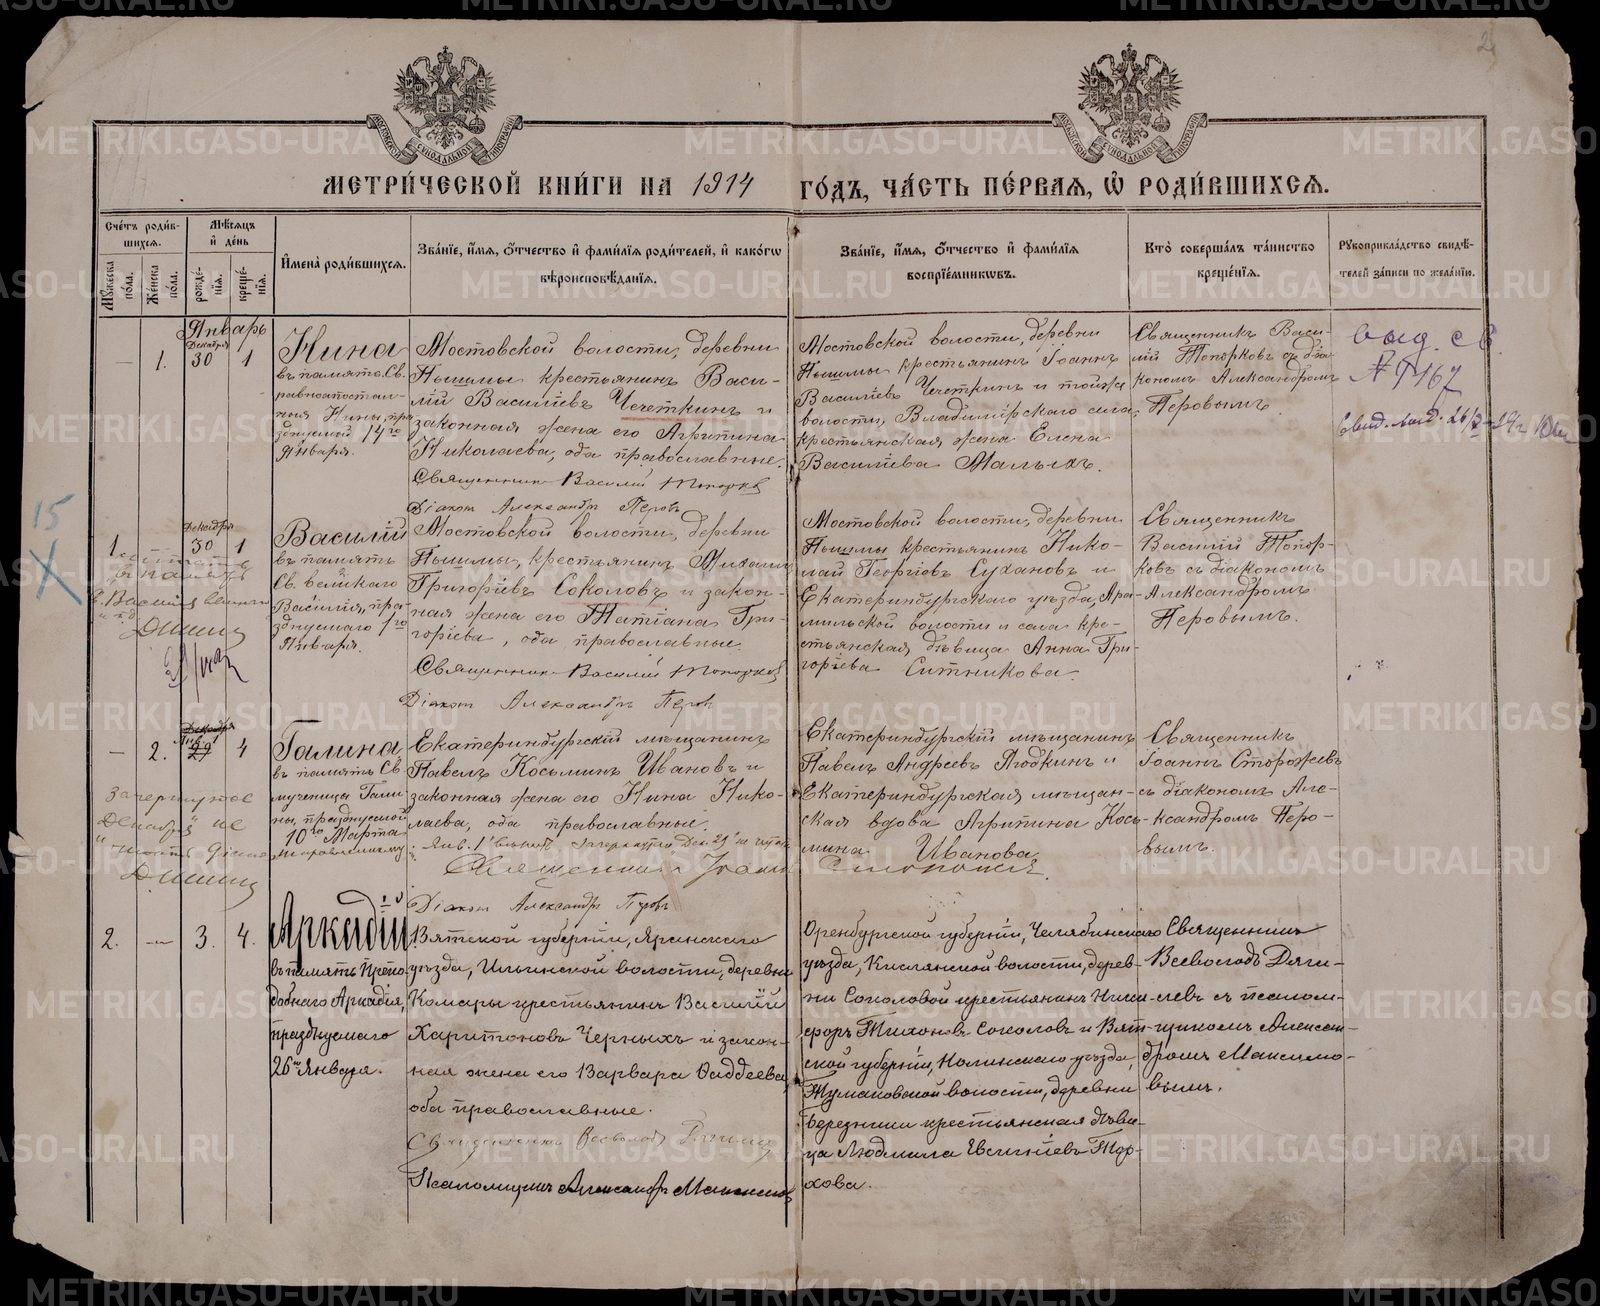 2
МЕТРИ́ЧЕСКОЙ КНИ́ГИ НА 1914 ГО́ДЪ, ЧА́СТЬ ПЕ́РВАЯ, Ѡ҆ РОДИ́ВШИХСЯ.
Сче́тъ роди́в-
шихся.
Мꙋ́жеска по́ла.
Же́нска по́ла.
Мѣ́сяцъ
и҆ де́нь
рожде́-
нїѧ.
креще́-
нїѧ.
И҆мена̀ роди́вшихсѧ.
Зва́нїе, и҆́мѧ, ѻ҆́тчество и҆ фами́лїѧ роди́телей, и҆ како́гѡ
вѣроисповѣ́данїѧ.
Зва́нїе, и҆́мѧ, ѻ҆́тчество и҆ фами́лїѧ
воспрїе́мникѡвъ.
Кто̀ соверша́лъ та́инство
креще́нїѧ.
Рꙋкоприкла́дство свидѣ́-
телей за́писи по жела́нїю.
Январь
Декабря
— 1. 30 1
Нина
въ память Св.
равноапостол-
ныя Нины, пра
зднуемой 14го
Января.
Мостовской волости, деревни
Пышмы крестьянинъ Васи-
лій Васильевъ Чечеткинъ и
законная жена его Агрипина
Николаева, оба православные.
Священникъ Василій Топорков
Діакон Александръ Перов
Мостовской волости, деревни
Пышмы крестьянинъ Іоаннъ
Васильевъ Чечеткинъ и тойже
волости, Владимірскаго села,
крестьянская жена Елена
Васильева Малыхъ.
Священникъ Васи-
лій Топорковъ съ діа
кономъ Александромъ
Перовымъ.
выд. св.
№ 7167
15
Декабря
1. 30 1
Василій
въ память
Св. великаго
Василія, пра
зднуемаго 1го
Января.
Мостовской волости, деревни
Пышмы, крестьянинъ Михаилъ
Григорьевъ Соколовъ и закон-
ная жена его Татіана Гри-
горіева, оба православные.
Священникъ Василій Топорков
Діакон Александръ Перов
Мостовской волости, деревни
Пышмы крестьянинъ Нико-
лай Георгіевъ Сухановъ и
Екатеринбургскаго уѣзда, Ара-
мильской волости и села кре-
стьянская дѣвица Анна Гри-
горіева Ситникова.
Священникъ
Василій Топор-
ковъ съ діакономъ
Александромъ
Перовымъ.
Декабря
Янв. 1
— 2. 29 4
Зачеркнутое
Декабря не
Галина
въ память Св
мученицы Гали
ны, празднуемой
10го Марта
Екатеринбургскій мѣщанинъ
Павелъ Косьминъ Ивановъ и
законная жена его Нина Нико-
лаева, оба православные.
Священникъ Іоанн Сторожевъ.
Діакон Александръ Перовъ
Екатеринбургскій мѣщанинъ
Павелъ Андреевъ Ягодкинъ и
Екатеринбургская мѣщан-
ская вдова Агрипина Кось-
мина Иванова
Священникъ
Іоаннъ Сторожевъ
съ діакономъ Але-
ксандромъ Перо-
вымъ.
2. — 3. 4.
Аркадій
въ память Препо
добнаго Аркадія,
празднуемаго
26го Января.
Вятской губерніи, Яранскаго
уѣзда, Ильинской волости, деревни
Комары крестьянинъ Василій
Харитоновъ Черныхъ и закон-
ная жена его Варвара Ѳаддеева,
оба православные.
Священникъ Всеволодъ
Псаломщикъ Александръ Максимов
Оренбургской губерніи, Челябинскаго
уѣзда, Кислянской волости, дерев-
ни Соколовой крестьянинъ Ники-
форъ Тихоновъ Соколовъ и Вят-
ской губерніи, Нолинскаго уѣзда,
Тумановской волости, деревни
Бередники крестьянская дѣви-
ца Людмила
хова.
Священникъ
Всеволодъ Дяги-
левъ съ псалом-
щикомъ Алексан-
дромъ Максимо-
вымъ.
METRIKI.GASO-URAL.RU